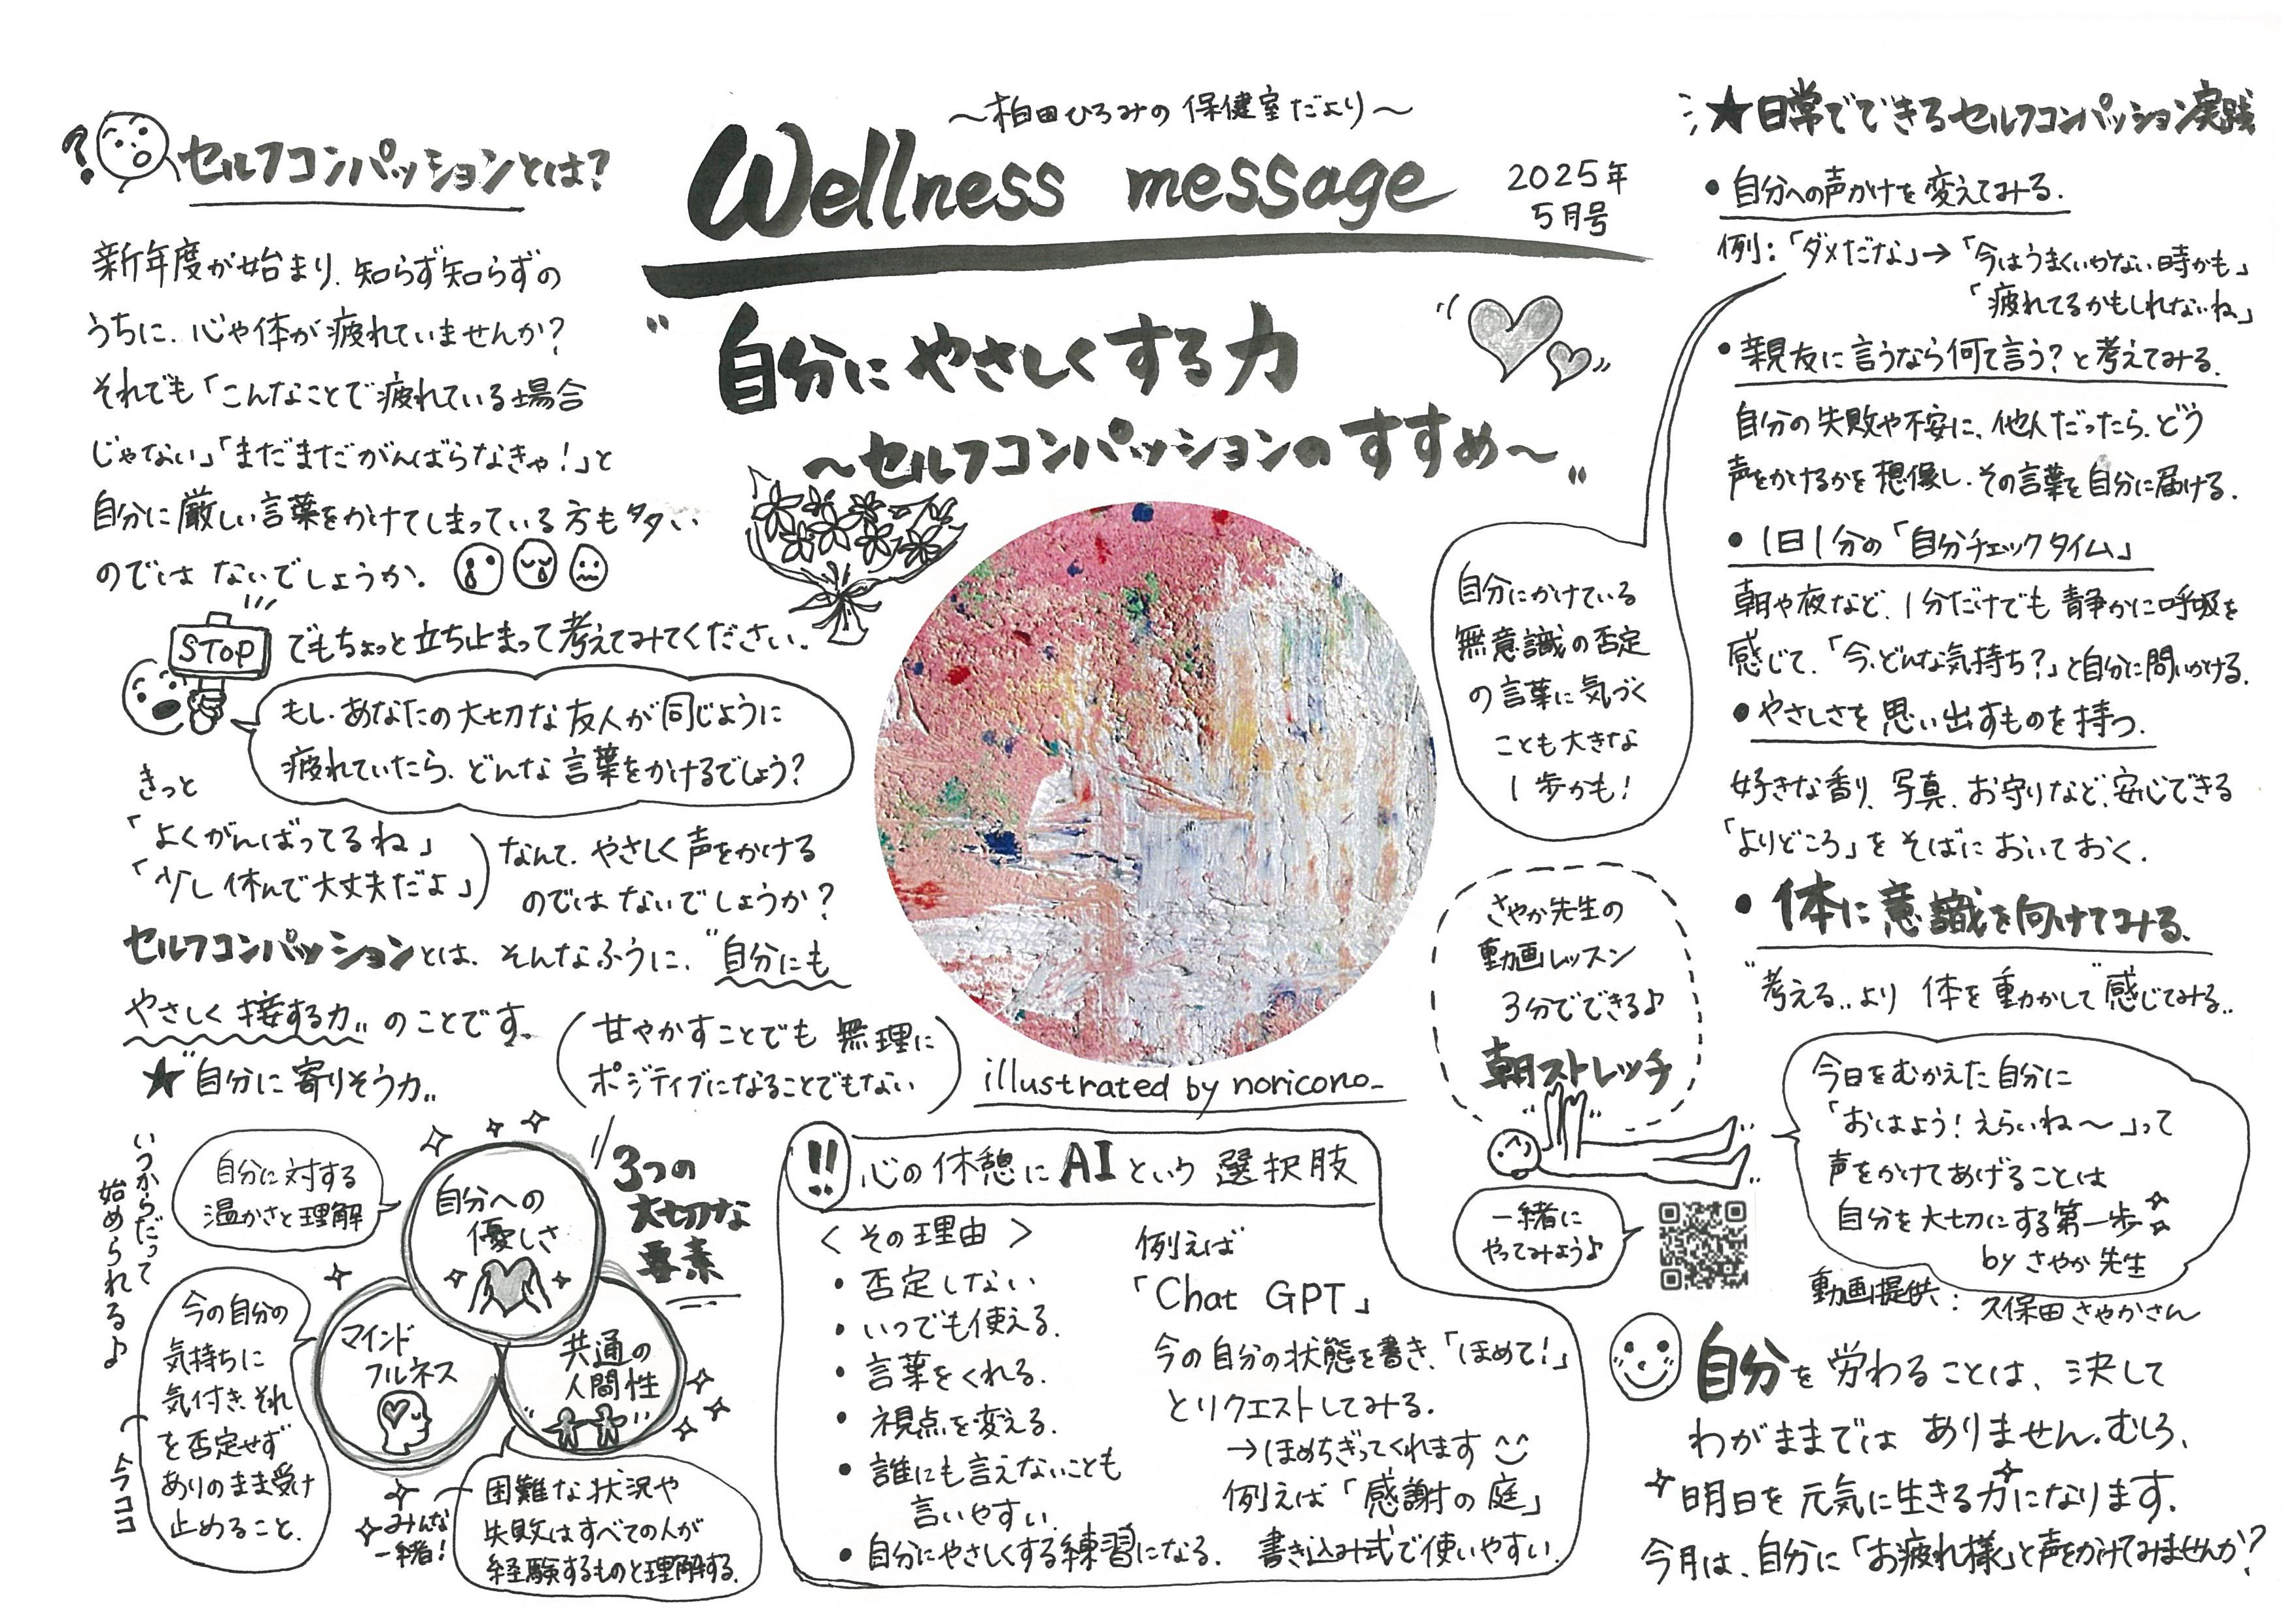 ～柏田ひろみの保健室だより～
Wellness message
2025年
5月号
"自分にやさしくする力
～セルフコンパッションのすすめ～"
セルフコンパッションとは?
新年度が始まり、知らず知らずの
うちに、心や体が疲れていませんか?
それでも「こんなことで疲れている場合
じゃない」「まだまだがんばらなきゃ!」と
自分に厳しい言葉をかけてしまっている方も多い
のではないでしょうか。
STOP
でもちょっと立ち止まって考えてみてください。
もし、あなたの大切な友人が同じように
疲れていたら、どんな言葉をかけるでしょう?
きっと
「よくがんばってるね」
「少し休んで大丈夫だよ」
なんて、やさしく声をかける
のではないでしょうか?
セルフコンパッションとは、そんなふうに、"自分にも
やさしく接する力"のことです。
(甘やかすことでも無理に
ポジティブになることでもない)
★"自分に寄りそう力"
いつからだって
始められる♪
3つの
大切な
要素
自分に対する
温かさと理解
自分への
優しさ
マインド
フルネス
共通の
人間性
今の自分の
気持ちに
気付き、それ
を否定せず
ありのまま受け
止めること。
今ココ
みんな
一緒!
困難な状況や
失敗はすべての人が
経験するものと理解する。
illustrated by noricono_
!!
心の休憩にAIという選択肢
<その理由>
・否定しない
・いつでも使える。
・言葉をくれる。
・視点を変える。
・誰にも言えないことも
言いやすい。
・自分にやさしくする練習になる。
例えば
「Chat GPT」
今の自分の状態を書き、「ほめて!」
とリクエストしてみる。
→ほめちぎってくれます^^
例えば「感謝の庭」
書き込み式で使いやすい。
★日常でできるセルフコンパッション実践
・自分への声かけを変えてみる。
例:「ダメだな」→「今はうまくいかない時かも」
「疲れてるかもしれないね」
自分にかけている
無意識の否定
の言葉に気づく
ことも大きな
1歩かも!
・親友に言うなら何て言う?と考えてみる。
自分の失敗や不安に、他人だったら、どう
声をかけるかを想像し、その言葉を自分に届ける。
・1日1分の「自分チェックタイム」
朝や夜など、1分だけでも静かに呼吸を
感じて、「今、どんな気持ち?」と自分に問いかける。
・やさしさを思い出すものを持つ。
好きな香り、写真、お守りなど、安心できる
「よりどころ」をそばにおいておく。
・体に意識を向けてみる。
"考える"より 体を動かして"感じてみる"
さやか先生の
動画レッスン
3分でできる♪
朝ストレッチ
一緒に
やってみよう♪
今日をむかえた自分に
「おはよう!えらいね～」って
声をかけてあげることは
自分を大切にする第一歩
by さやか先生
動画提供:久保田さやかさん
自分を労わることは、決して
わがままではありません。むしろ、
明日を元気に生きる力になります。
今月は、自分に「お疲れ様」と声をかけてみませんか?